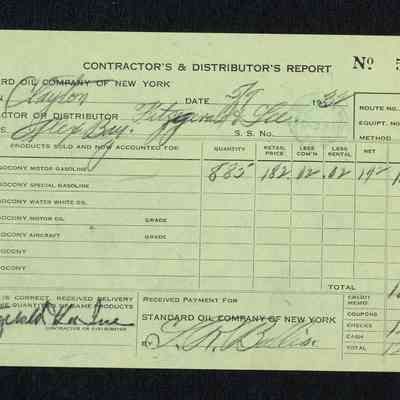 CONTRACTOR'S & DISTRIBUTOR'S REPORT No 5
ARD OIL COMPANY OF NEW YORK
N Clayton DATE 5/7 1932
ROUTE NO.
CTOR OR DISTRIBUTOR Fitzgerald & Lee
EQUIPT. NO.
S. Alex Bay. S. S. No.
METHOD
PRODUCTS SOLD AND NOW ACCOUNTED FOR QUANTITY RETAIL PRICE LESS COM'N LESS RENTAL NET
SOCONY MOTOR GASOLINE 885 182 .02 .02
SOCONY SPECIAL GASOLINE
SOCONY WATER WHITE CO.
SOCONY MOTOR OIL GRADE
SOCONY AIRCRAFT GRADE
SOCONY
SOCONY
TOTAL
IS CORRECT. RECEIVED DELIVERY
E QUANTITIES OF SAME PRODUCTS
CONTRACTOR OR DISTRIBUTOR
RECEIVED PAYMENT FOR
STANDARD OIL COMPANY OF NEW YORK
BY
CREDIT MEMO
COUPONS
CHECKS
CASH
TOTAL